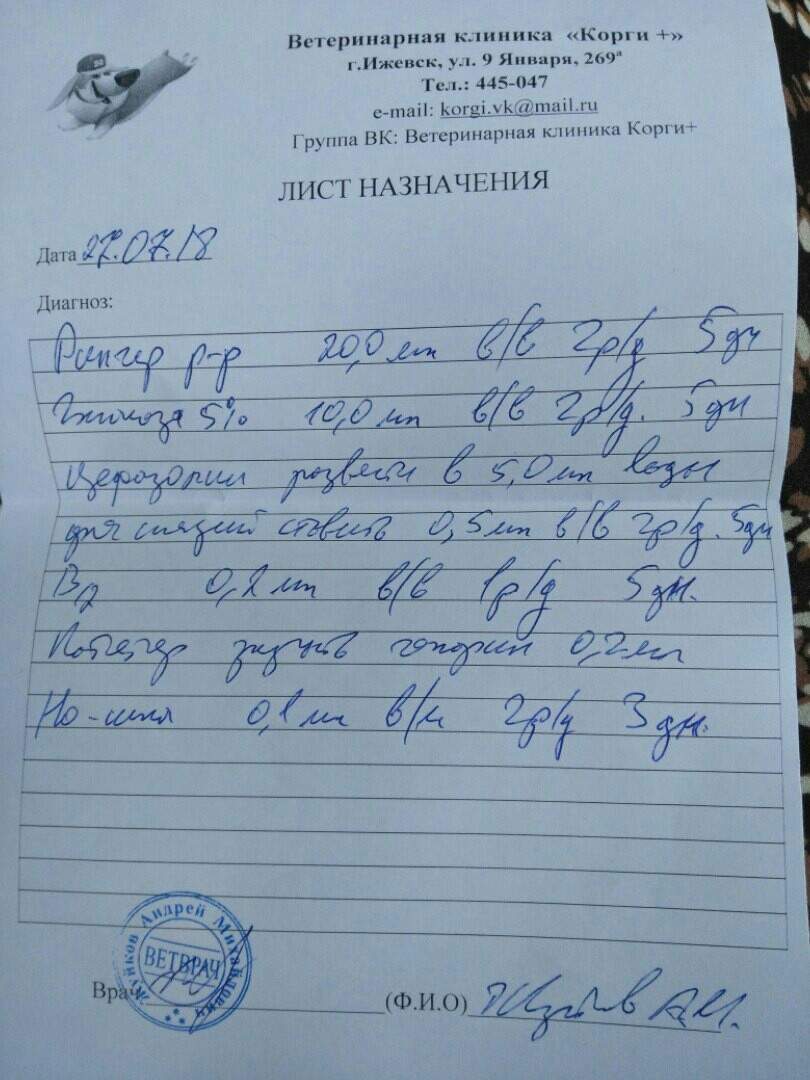 Ветеринарная клиника «Корги +»
г.Ижевск, ул. 9 Января, 269ª
Тел.: 445-047
e-mail: korgi.vk@mail.ru
Группа ВК: Ветеринарная клиника Корги+
ЛИСТ НАЗНАЧЕНИЯ
Дата 27.07.18
Диагноз:
Рингер р-р 20,0 мл в/в 2р/д 5дн
Глюкоза 5% 10,0 мл в/в 2р/д. 5дн
Цефазолин развести в 5,0мл воды
ставить 0,5мл в/в 2р/д. 5дн
В12 0,2мл в/в 1р/д 5дн.
Катетер 0,2мл
Но-шпа 0,1мл в/м 2р/д 3дн.
Жуйков Андрей Михайлович
ВЕТВРАЧ
Врач (Ф.И.О) Жуйков А.М.